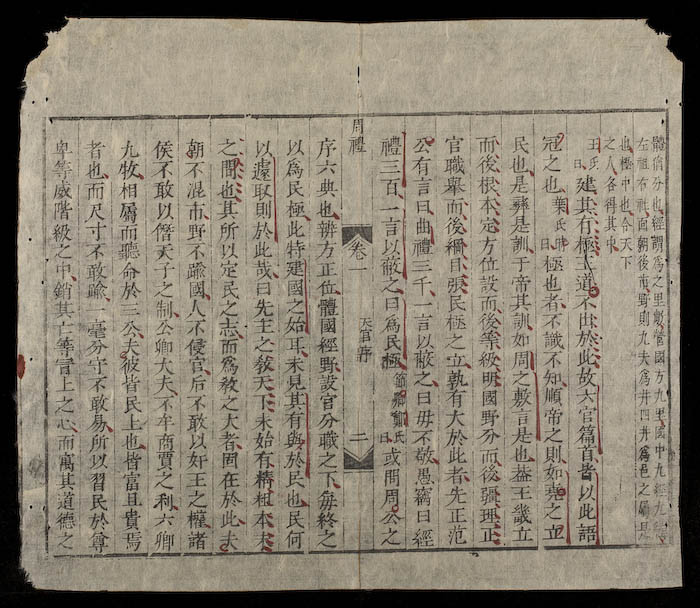 體猶分也經謂爲之里數營國方九里國中九經九緯
左祖右社面朝後市野則九夫爲井四井爲邑之屬是
也極中也令天下
之人各得其中
王氏曰建其有極王道不出於此故六官篇首皆以此語
冠之也葉氏時曰極也者不識不知順帝之則如莫之立
民也是彝是訓于帝其訓如周之敷言是也葢王畿立
而後根本定方位設而後等級明國野分而後彊理正
官職舉而後綱目張民極之立孰有大於此者先正范
公有言曰曲禮三千一言以蔽之曰毋不敬愚竊曰經
禮三百一言以蔽之曰爲民極節卿鄭氏曰或問周公之
周禮 卷一 天官序 二
序六典也辨方正位體國經野設官分職之下每終之
以爲民極此特建國之始耳未見其有與於民也民何
以遽取則於此哉曰先王之敎天下未始有精粗本末
之間也其所以定民之志而爲敎之大者固在於此夫
朝不混市野不踰國人不侵官后不敢以奸王之權諸
侯不敢以僭天子之制公卿大夫不牟商賈之利六卿
九牧相屬而聽命於三公夫彼皆民上也皆富且貴焉
者也而尺寸不敢踰一毫分守不敢易所以習民於尊
卑等威階級之中銷其亡等冒上之心而寓其道德之